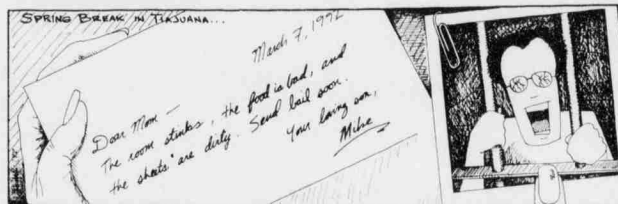 SPRING BREAK IN TIAJUANA...
March 7, 1992
Dear Mom —
The room stinks, the food is bad, and
the sheets are dirty. Send bail soon.
Your loving son,
Mike